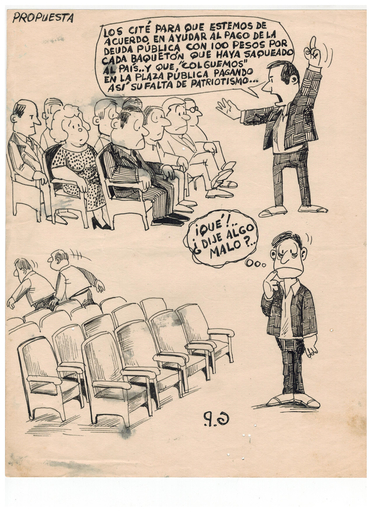 PROPUESTA
LOS CITÉ PARA QUE ESTEMOS DE
ACUERDO, EN AYUDAR AL PAGO DE LA
DEUDA PÚBLICA CON 100 PESOS POR
CADA BAQUETÓN QUE HAYA SAQUEADO
AL PAÍS.. Y QUE, "COLGUEMOS"
EN LA PLAZA PÚBLICA PAGANDO
ASÍ SU FALTA DE PATRIOTISMO...
¡QUÉ!..
¿DIJE ALGO
MALO?..